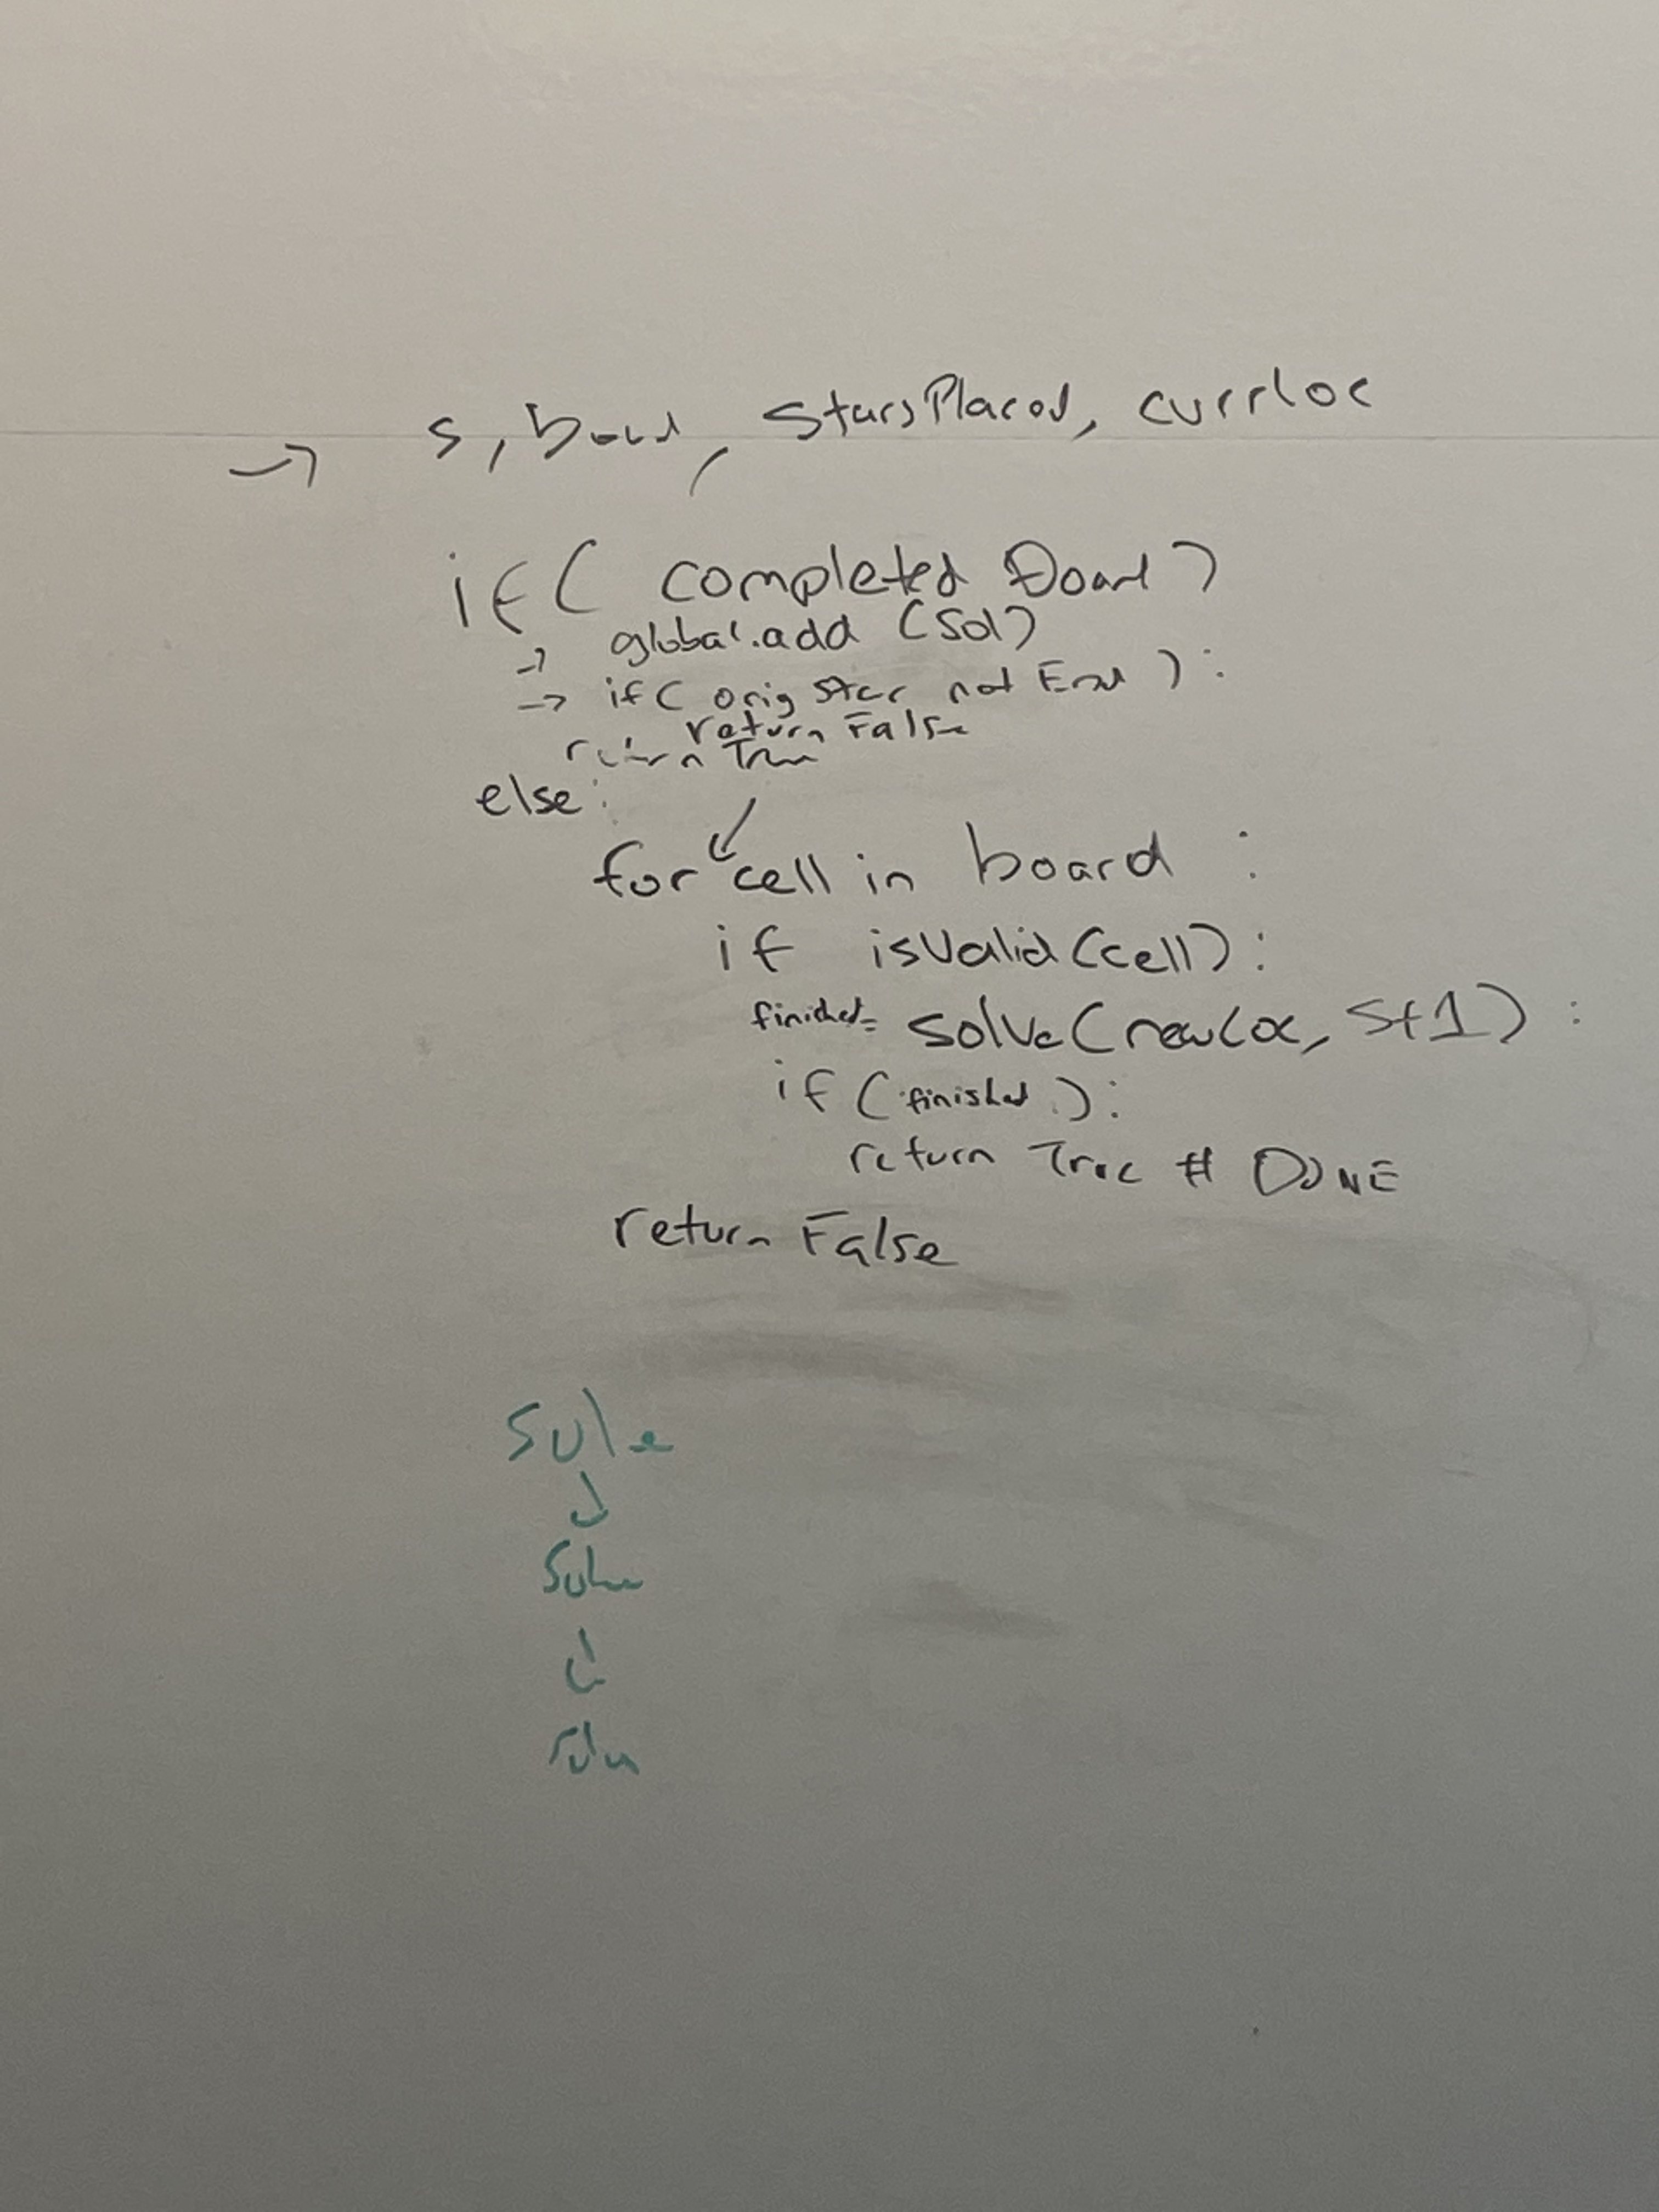 → s, board, starsPlaced, currLoc
if( completed Board)
→ global.add (sol)
→ if( orig star not End ):
return False
return True
else:
for cell in board :
if isValid(cell):
finished= solve(newLoc, s+1) :
if (finished ):
return True # DONE
return False
solve
↓
solve
↓
solve